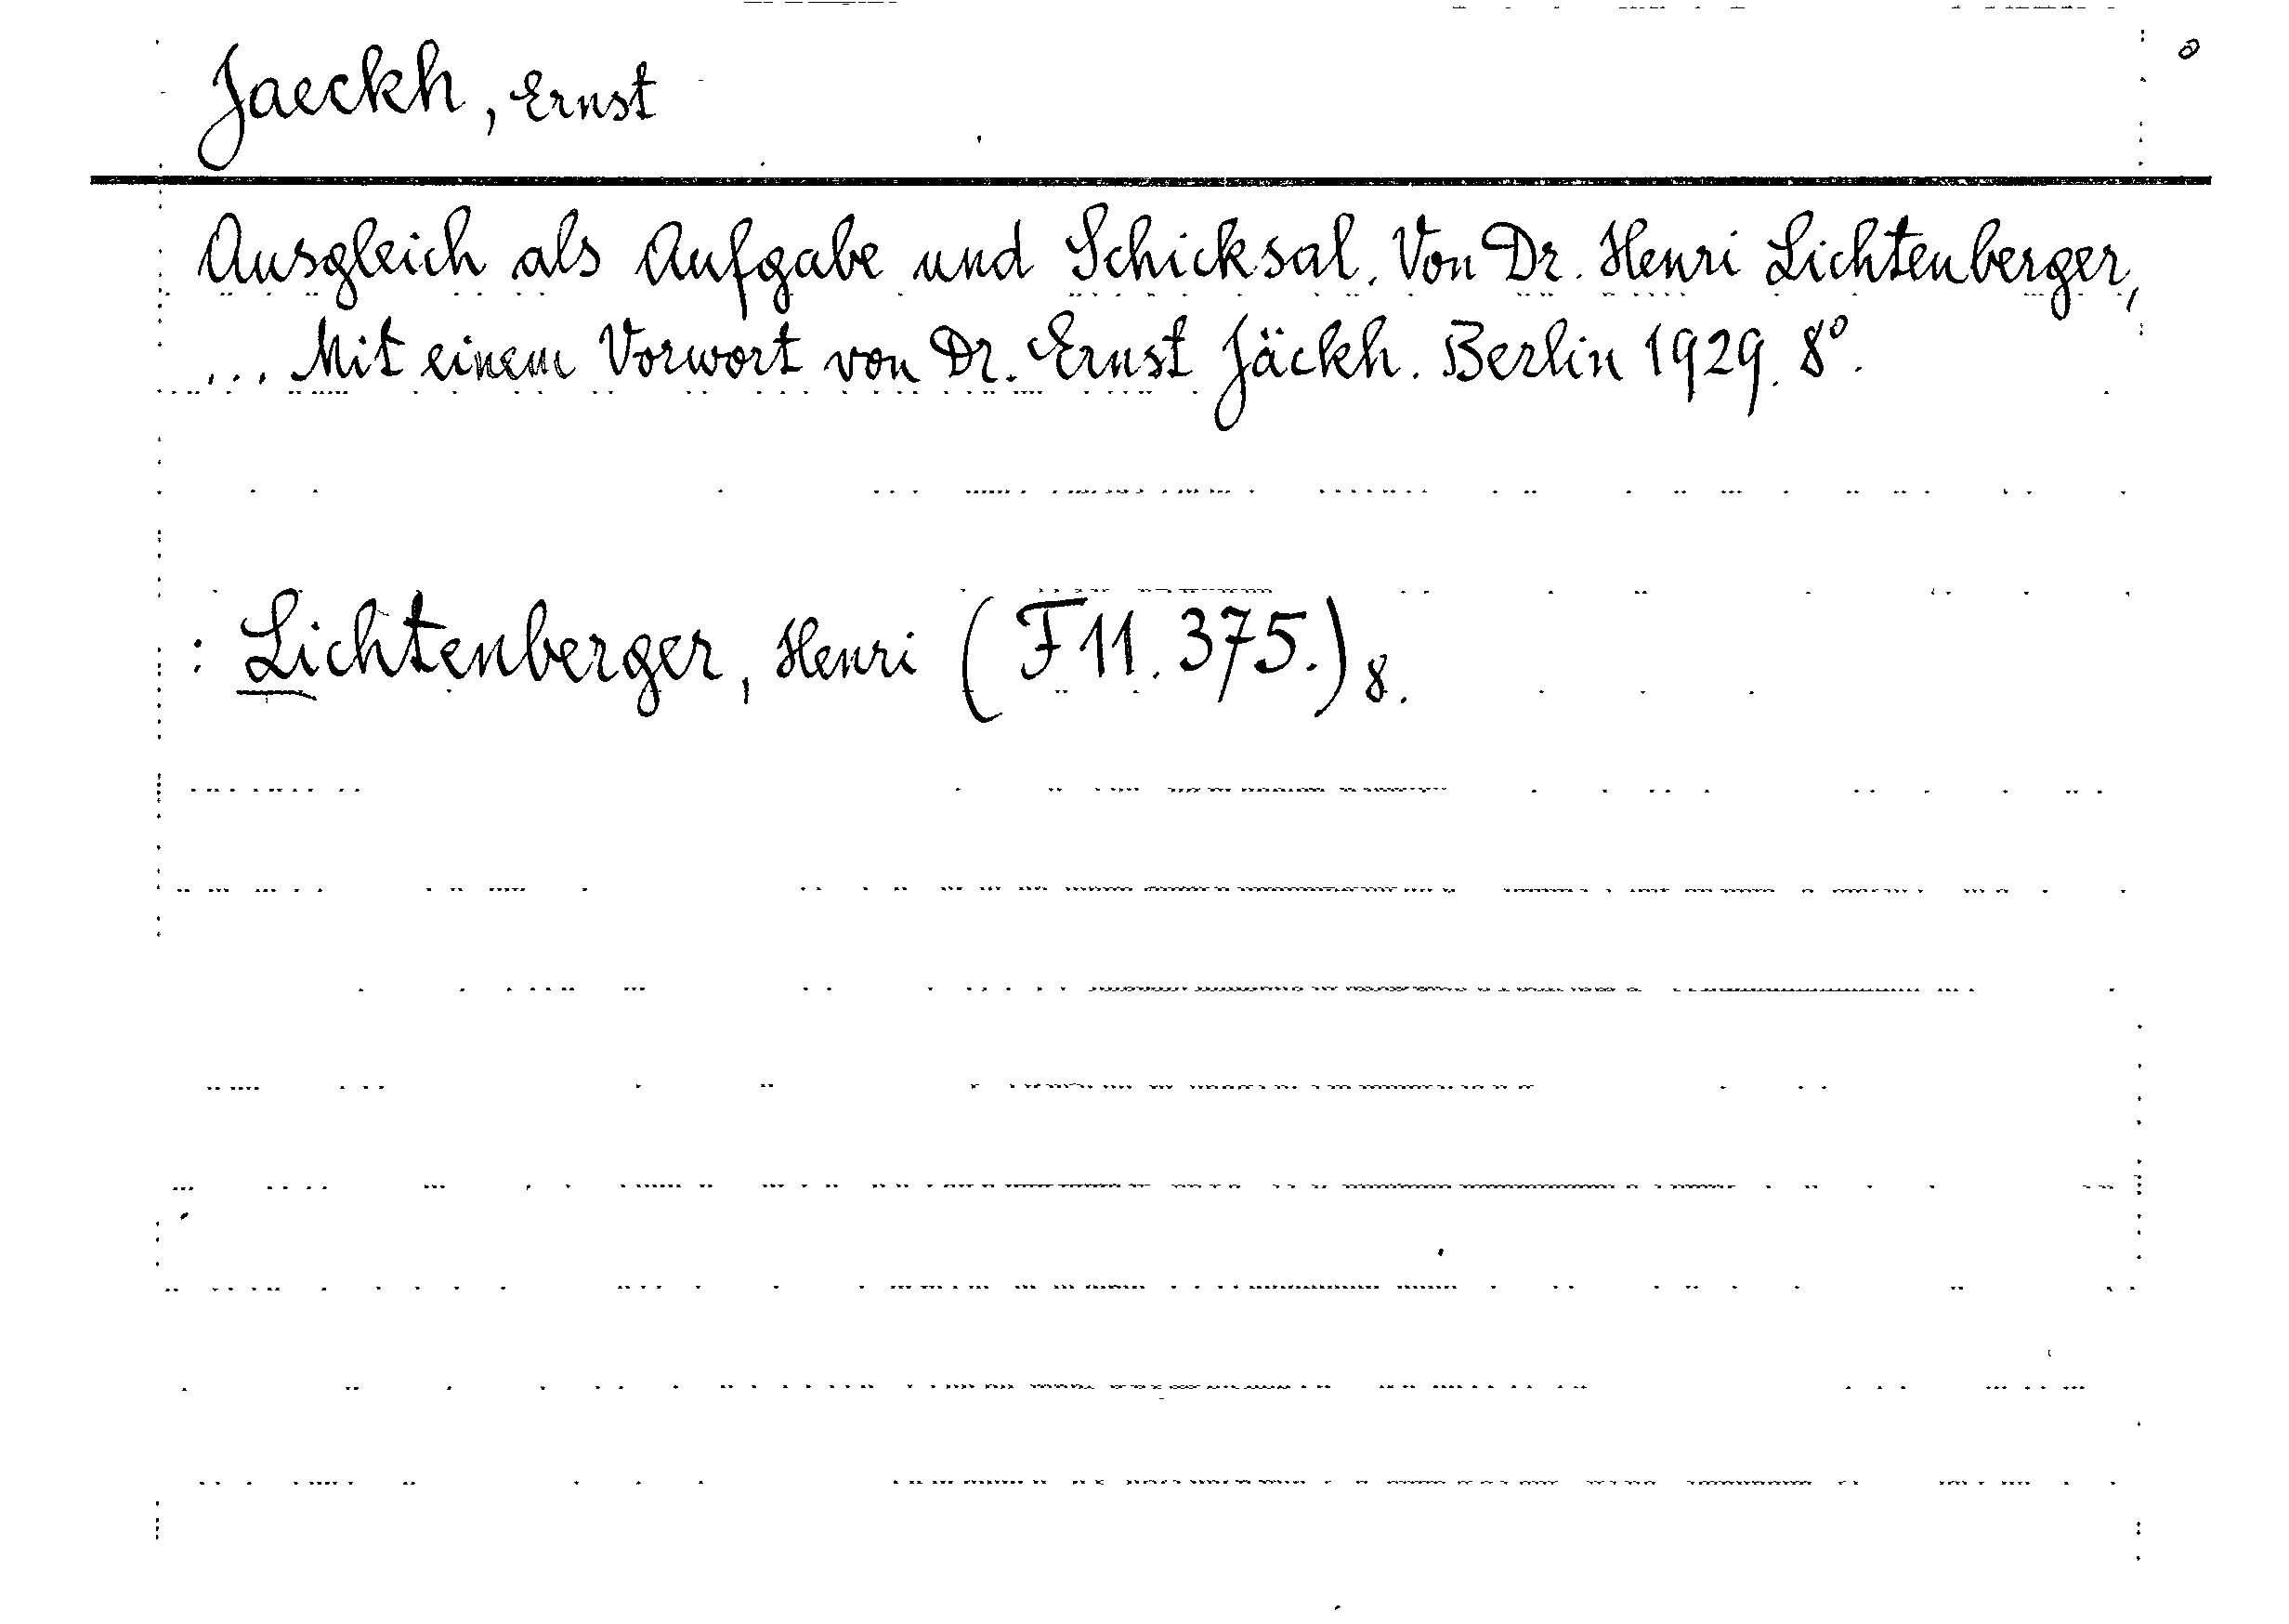 Jaeckh, Ernst
Ausgleich als Aufgabe und Schicksal. Von Dr. Henri Lichtenberger,
... Mit einem Vorwort von Dr. Ernst Jäckh. Berlin 1929. 8°.
: Lichtenberger, Henri (F 11. 375.) 8.